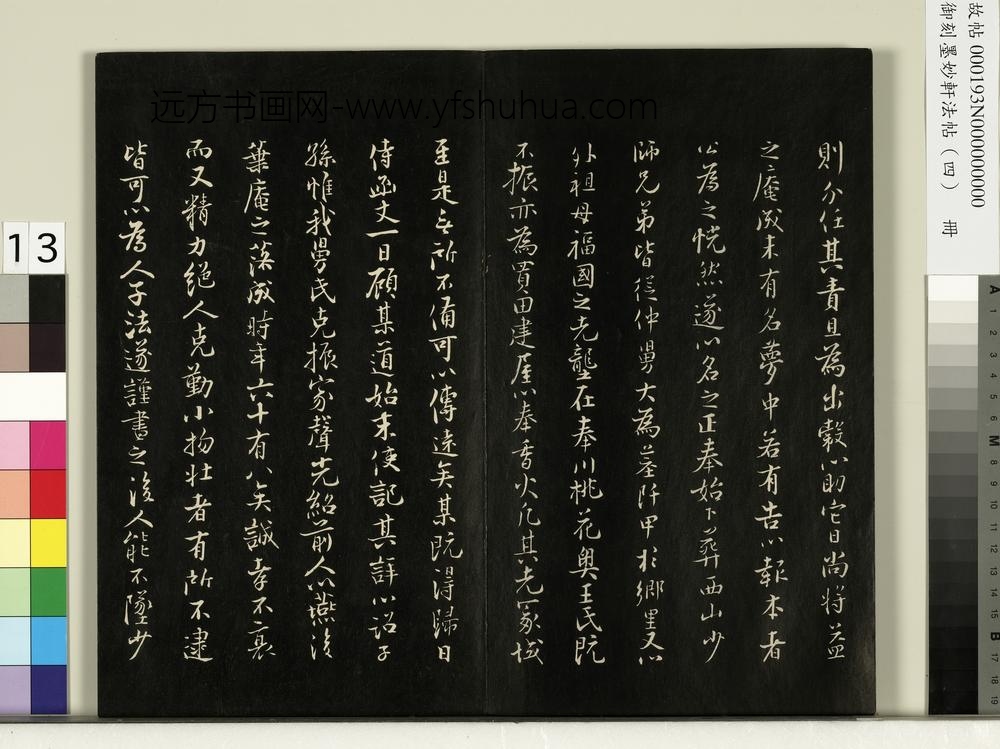 則分任其責且為出穀以助它日尚將益
之庵成未有名夢中若有告以報本者
公為之恍然遂以名之正奉始卜葬西山少
師兄弟皆從仲舅大為葬阡甲於鄉里又以
外祖母福國之先壠在奉川桃花奧王氏既
不振亦為買田建屋以奉香火凡其先冢域
至是無所不備可以傳遠矣某既得歸日
侍函丈一日顧某道始末使記其詳以詔子
孫惟我舅氏克振家聲光紹前人以燕後
葉庵之落成時年六十有八矣誠孝不衰
而又精力絕人克勤小物壯者有所不逮
皆可以為人子法遂謹書之後人能不墜少
远方书画网-www.yfshuhua.com
故帖 000193N000000000
御刻墨妙軒法帖（四） 冊
13
A 1 2 3 4 5 6 M 8 9 10 11 12 13 14 15 B 17 18 19